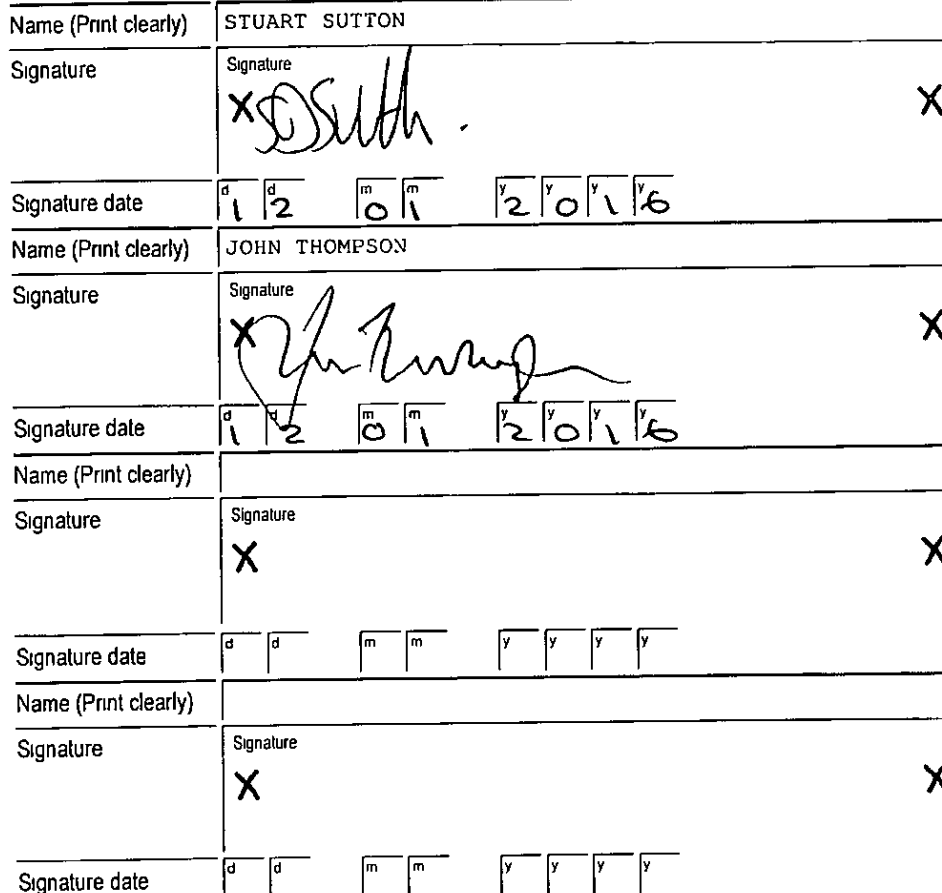 Name (Print clearly) STUART SUTTON
Signature Signature
X X
Signature date d 1 d 2 m 0 m 1 y 2 y 0 y 1 y 6
Name (Print clearly) JOHN THOMPSON
Signature Signature
X X
Signature date d 1 d 2 m 0 m 1 y 2 y 0 y 1 y 6
Name (Print clearly)
Signature Signature
X X
Signature date d d m m y y y y
Name (Print clearly)
Signature Signature
X X
Signature date d d m m y y y y